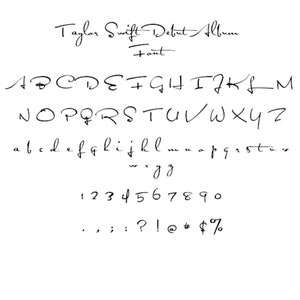 Taylor Swift Debut Album
Font
A B C D E F G H I J K L M
N O P Q R S T U V W X Y Z
a b c d e f g h i j k l m n o p q r s t u v
w x y z
1 2 3 4 5 6 7 8 9 0
. , ; : ? ! @ * $ %